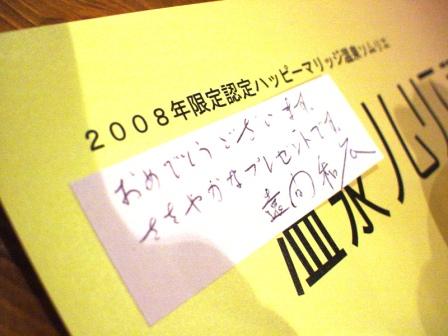 2008年限定認定ハッピーマリッジ温泉ソムリエ
おめでとうございます。
ささやかなプレゼントです。
温泉ソムリエ